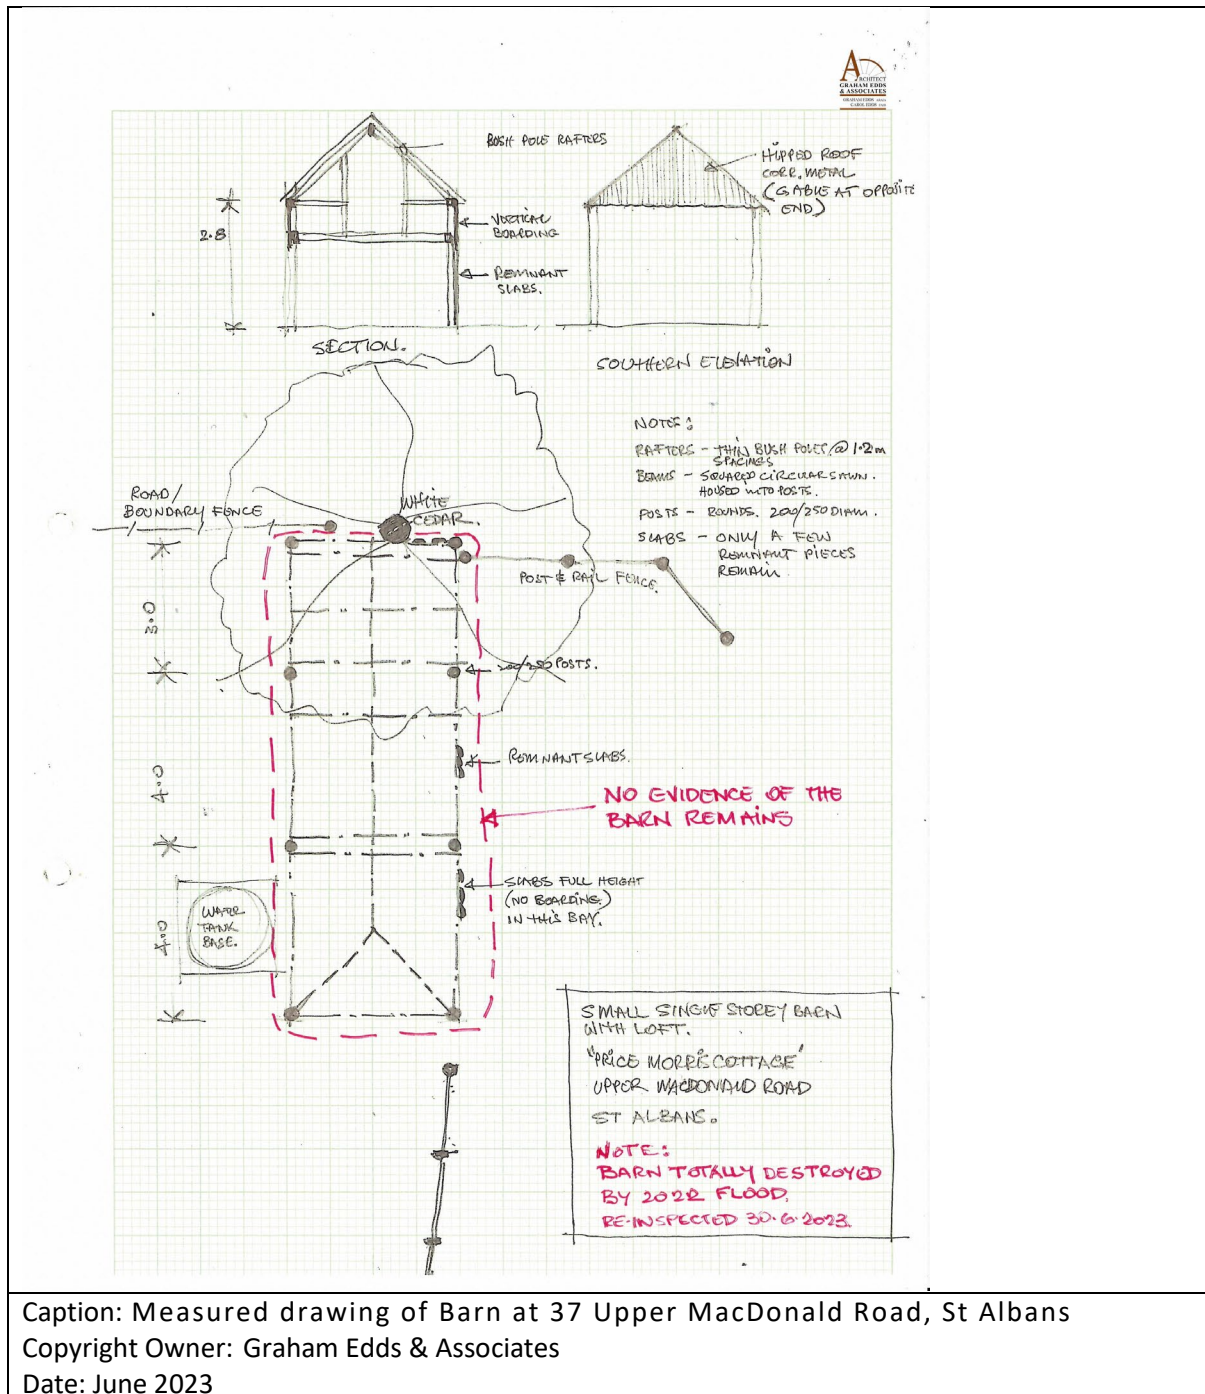 ARCHITECT
GRAHAM EDDS
& ASSOCIATES
BUSH POLE RAFTERS
HIPPED ROOF
CORR. METAL
(GABLE AT OPPOSITE
END)
2.8
VERTICAL
BOARDING
REMNANT
SLABS.
SECTION.
SOUTHERN ELEVATION
NOTES:
RAFTERS - THIN BUSH POLES @ 1.2m
SPACINGS
BEAMS - SQUARED CIRCULAR SAWN.
HOUSED INTO POSTS.
POSTS - ROUNDS. 200/250 DIAM.
SLABS - ONLY A FEW
REMNANT PIECES
REMAIN.
ROAD/
BOUNDARY FENCE
WHITE
CEDAR.
POST & RAIL FENCE.
3.0
200/250 POSTS.
REMNANT SLABS.
4.0
NO EVIDENCE OF THE
BARN REMAINS
SLABS FULL HEIGHT
(NO BOARDING)
IN THIS BAY.
WATER
TANK
BASE.
4.0
SMALL SINGLE STOREY BARN
WITH LOFT.
"PRICE MORRIS COTTAGE"
UPPER MACDONALD ROAD
ST ALBANS.
NOTE:
BARN TOTALLY DESTROYED
BY 2022 FLOOD.
RE-INSPECTED 30.6.2023.
Caption: Measured drawing of Barn at 37 Upper MacDonald Road, St Albans
Copyright Owner: Graham Edds & Associates
Date: June 2023